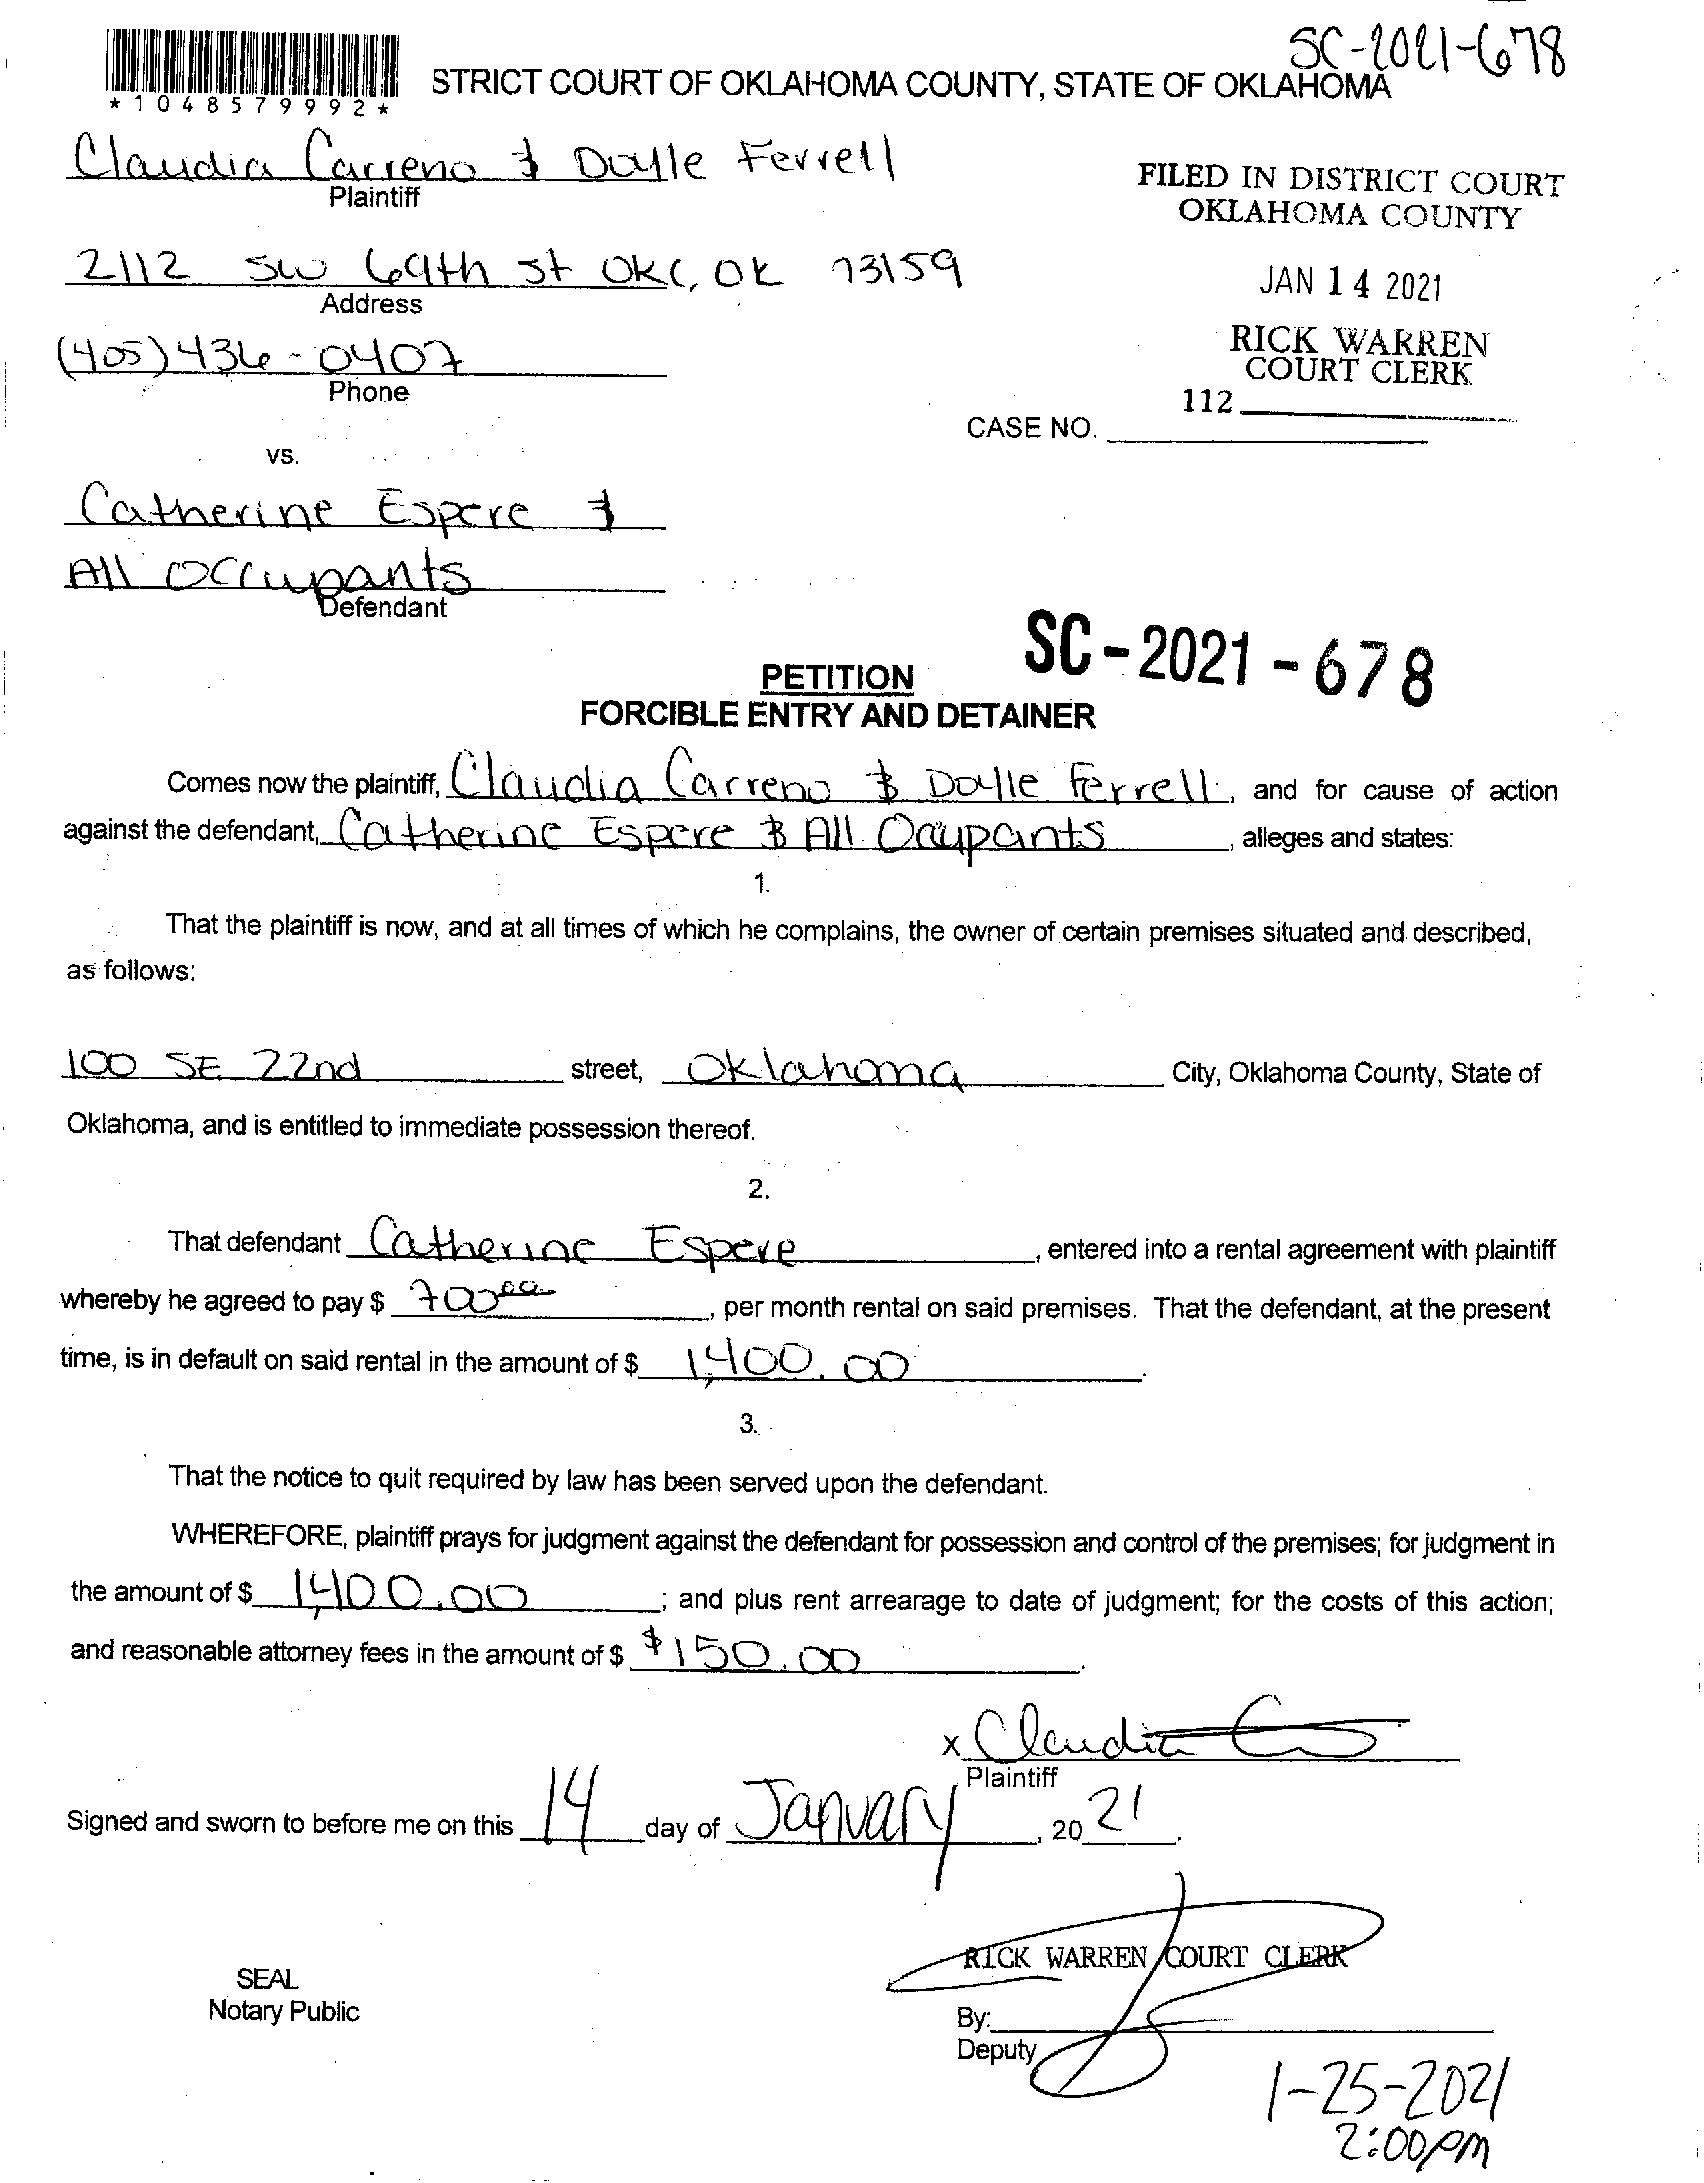 SC-2021-678
*1048579992*
STRICT COURT OF OKLAHOMA COUNTY, STATE OF OKLAHOMA
Claudia Carreno & Doyle Ferrell
Plaintiff
FILED IN DISTRICT COURT
OKLAHOMA COUNTY
2112 SW 69th St OKC, OK 73159
Address
JAN 14 2021
RICK WARREN
COURT CLERK
(405) 436-0407
Phone
112
CASE NO.
vs.
Catherine Espere &
All Occupants
Defendant
SC-2021-678
PETITION
FORCIBLE ENTRY AND DETAINER
Comes now the plaintiff, Claudia Carreno & Doyle Ferrell, and for cause of action
against the defendant, Catherine Espere & All Occupants, alleges and states:
1.
That the plaintiff is now, and at all times of which he complains, the owner of certain premises situated and described,
as follows:
100 SE 22nd street, Oklahoma City, Oklahoma County, State of
Oklahoma, and is entitled to immediate possession thereof.
2.
That defendant Catherine Espere, entered into a rental agreement with plaintiff
whereby he agreed to pay $ 700.00, per month rental on said premises. That the defendant, at the present
time, is in default on said rental in the amount of $ 1,400.00.
3.
That the notice to quit required by law has been served upon the defendant.
WHEREFORE, plaintiff prays for judgment against the defendant for possession and control of the premises; for judgment in
the amount of $ 1,400.00; and plus rent arrearage to date of judgment; for the costs of this action;
and reasonable attorney fees in the amount of $ $150.00.
x Claudia
Plaintiff
Signed and sworn to before me on this 14 day of January, 2021.
RICK WARREN COURT CLERK
SEAL
Notary Public
By:
Deputy
1-25-2021
2:00pm